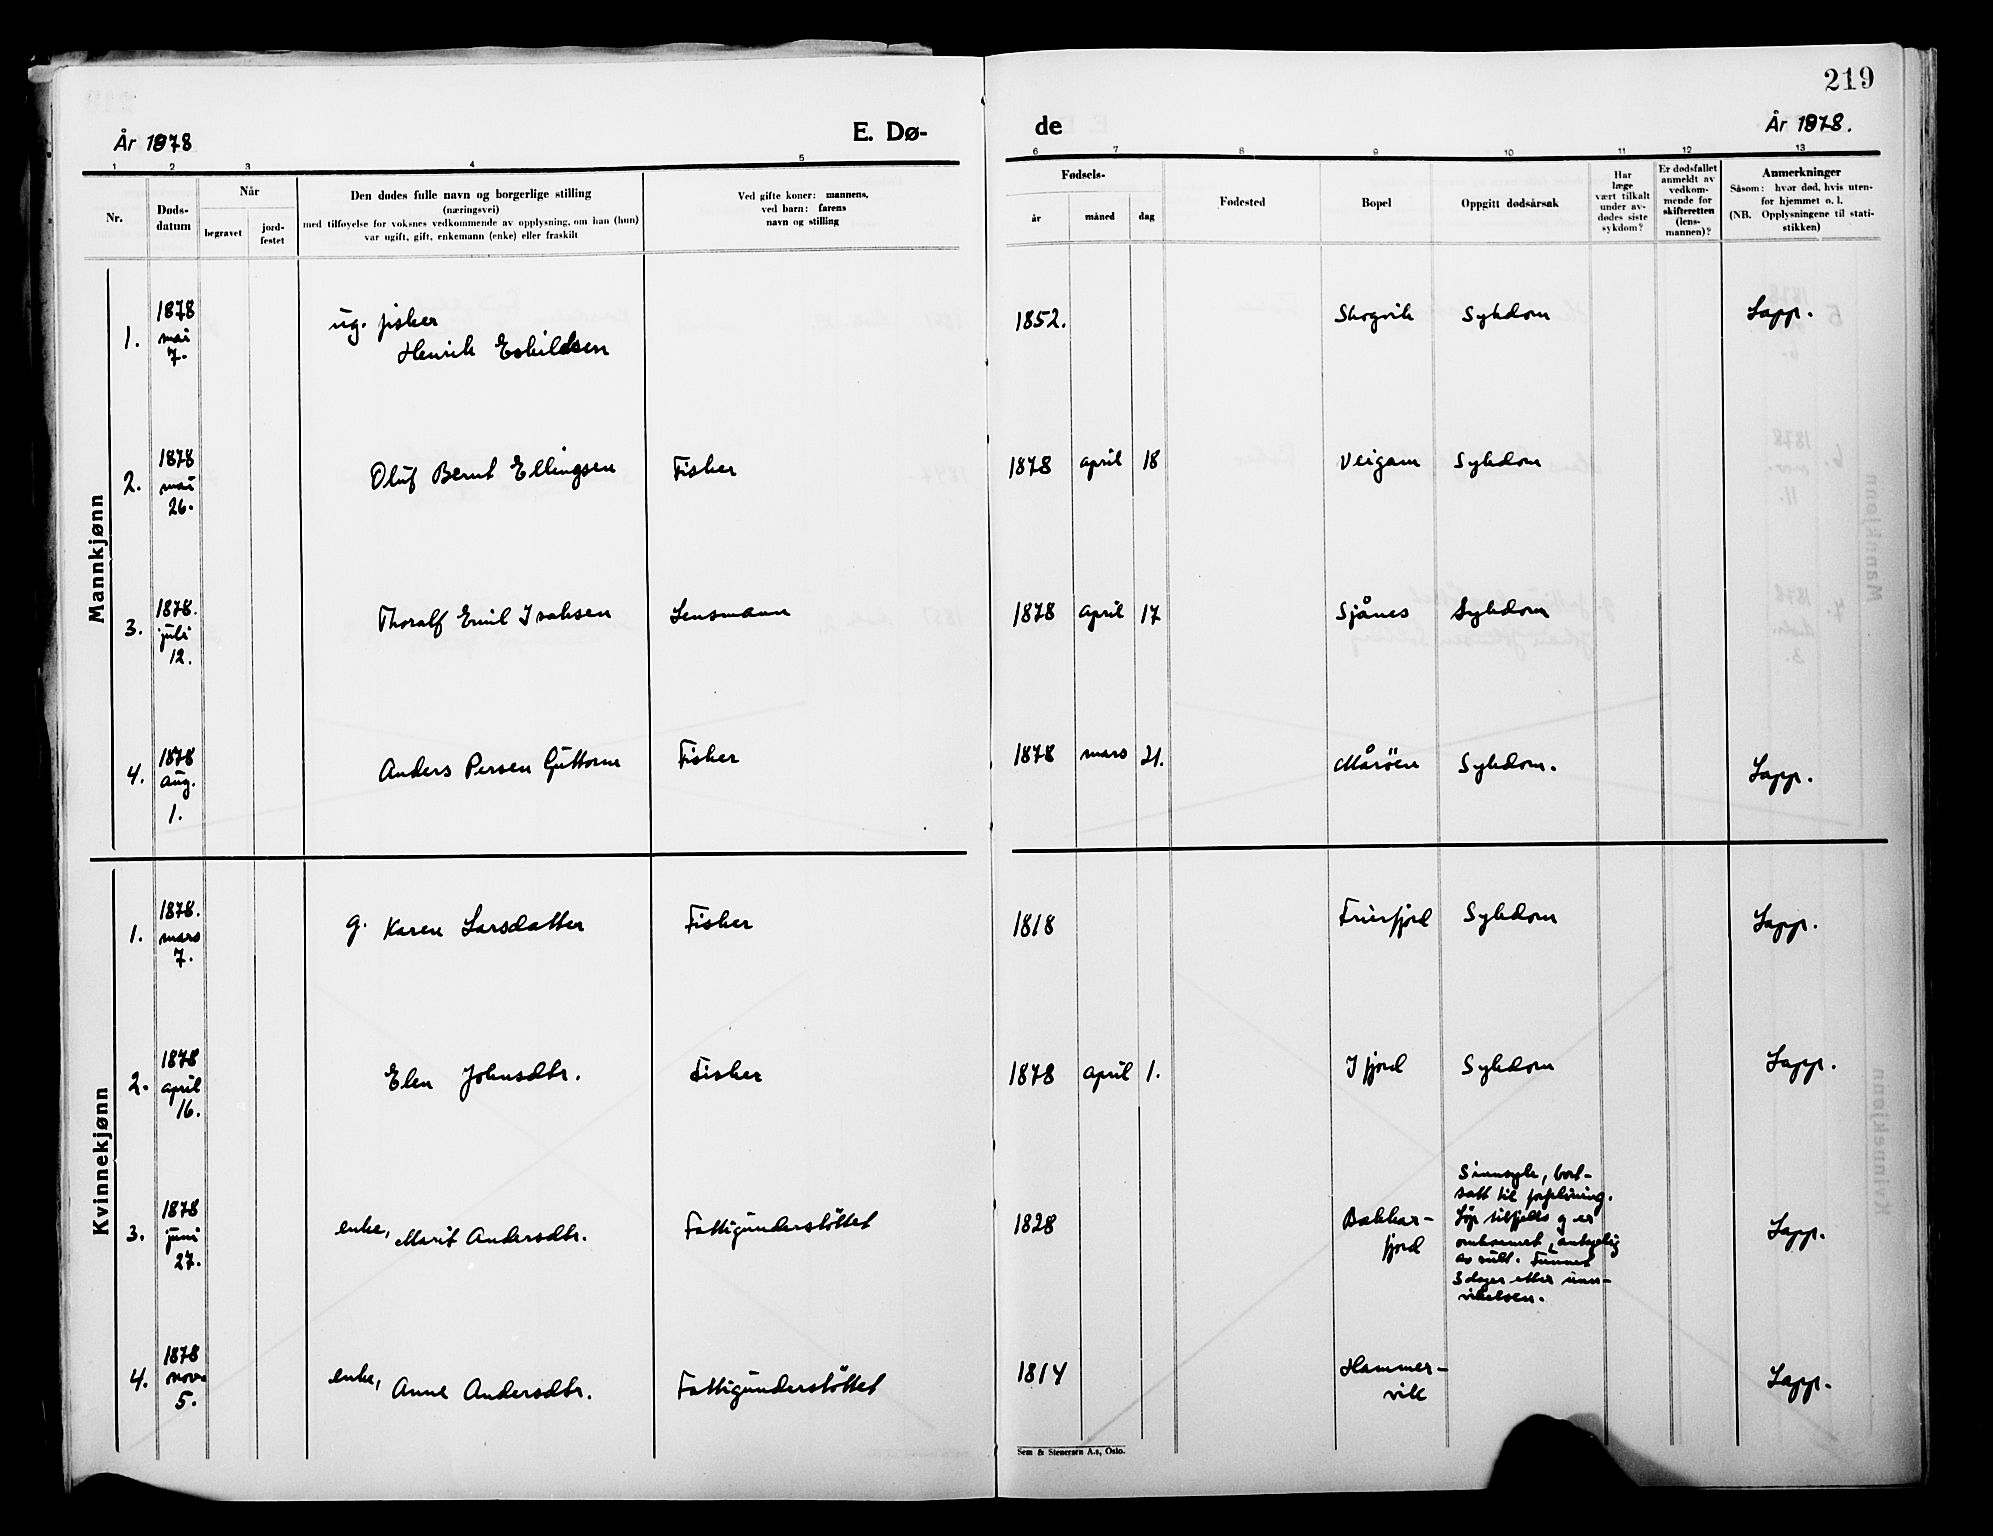 219
År 1878
E. Dø-
de
År 1878.
1 2 3 4 5
6 7 8 9 10 11 12 13
Nr.
Døds-
datum
Når
begravet
jord-
festet
Den dødes fulle navn og borgerlige stilling
(næringsvei)
med tilføyelse for voksnes vedkommende av opplysning, om han (hun)
var ugift, gift, enkemann (enke) eller fraskilt
Ved gifte koner: mannens,
ved barn: farens
navn og stilling
Fødsels-
år
måned
dag
Fødested
Bopel
Oppgitt dødsårsak
Har
læge
vært tilkalt
under av-
dødes siste
sykdom?
Er dødsfallet
anmeldt av
vedkom-
mende for
skifteretten
(lens-
mannen)?
Anmerkninger
Såsom: hvor død, hvis uten-
for hjemmet o. l.
(NB. Opplysningene til stati-
stikken)
Mannkjønn
1.
1878
mai
7.
ug. fisker
Henrik Eskildsen
1852.
Skogvik
Sykdom
Lapp.
2.
1878
mai
26.
Oluf Bernt Ellingsen
Fisker
1878 april 18
Veigam
Sykdom
3.
1878.
juli
12.
Thoralf Emil Isaksen
Lensmann
1878 april 17
Sjånes
Sykdom
4.
1878
aug.
1.
Anders Persen Guttorm
Fisker
1878 mars 21.
Måröen
Sykdom.
Lapp.
Kvinnekjønn
1.
1878.
mars
7.
g. Karen Larsdatter
Fisker
1818
Frierfjord
Sykdom
Lapp.
2.
1878
april
16.
Elen Johnsdtr.
Fisker
1878 april 1.
Ifjord
Sykdom
Lapp.
3.
1878
juni
27.
enke, Marit Andersdtr.
Fattigunderstöttet
1828
Bakkar-
fjord
Sinnsyk, bort-
satt til forpleining.
Löp tilfjells og er
omkommet, antagelig
av sult. Funnet
3 dager etter unn-
vikelsen.
Lapp.
4.
1878
nov.
5.
enke, Anne Andersdtr.
Fattigunderstöttet
1814
Hammer-
vik
Lapp.
Sem & Stenersen A.s, Oslo.